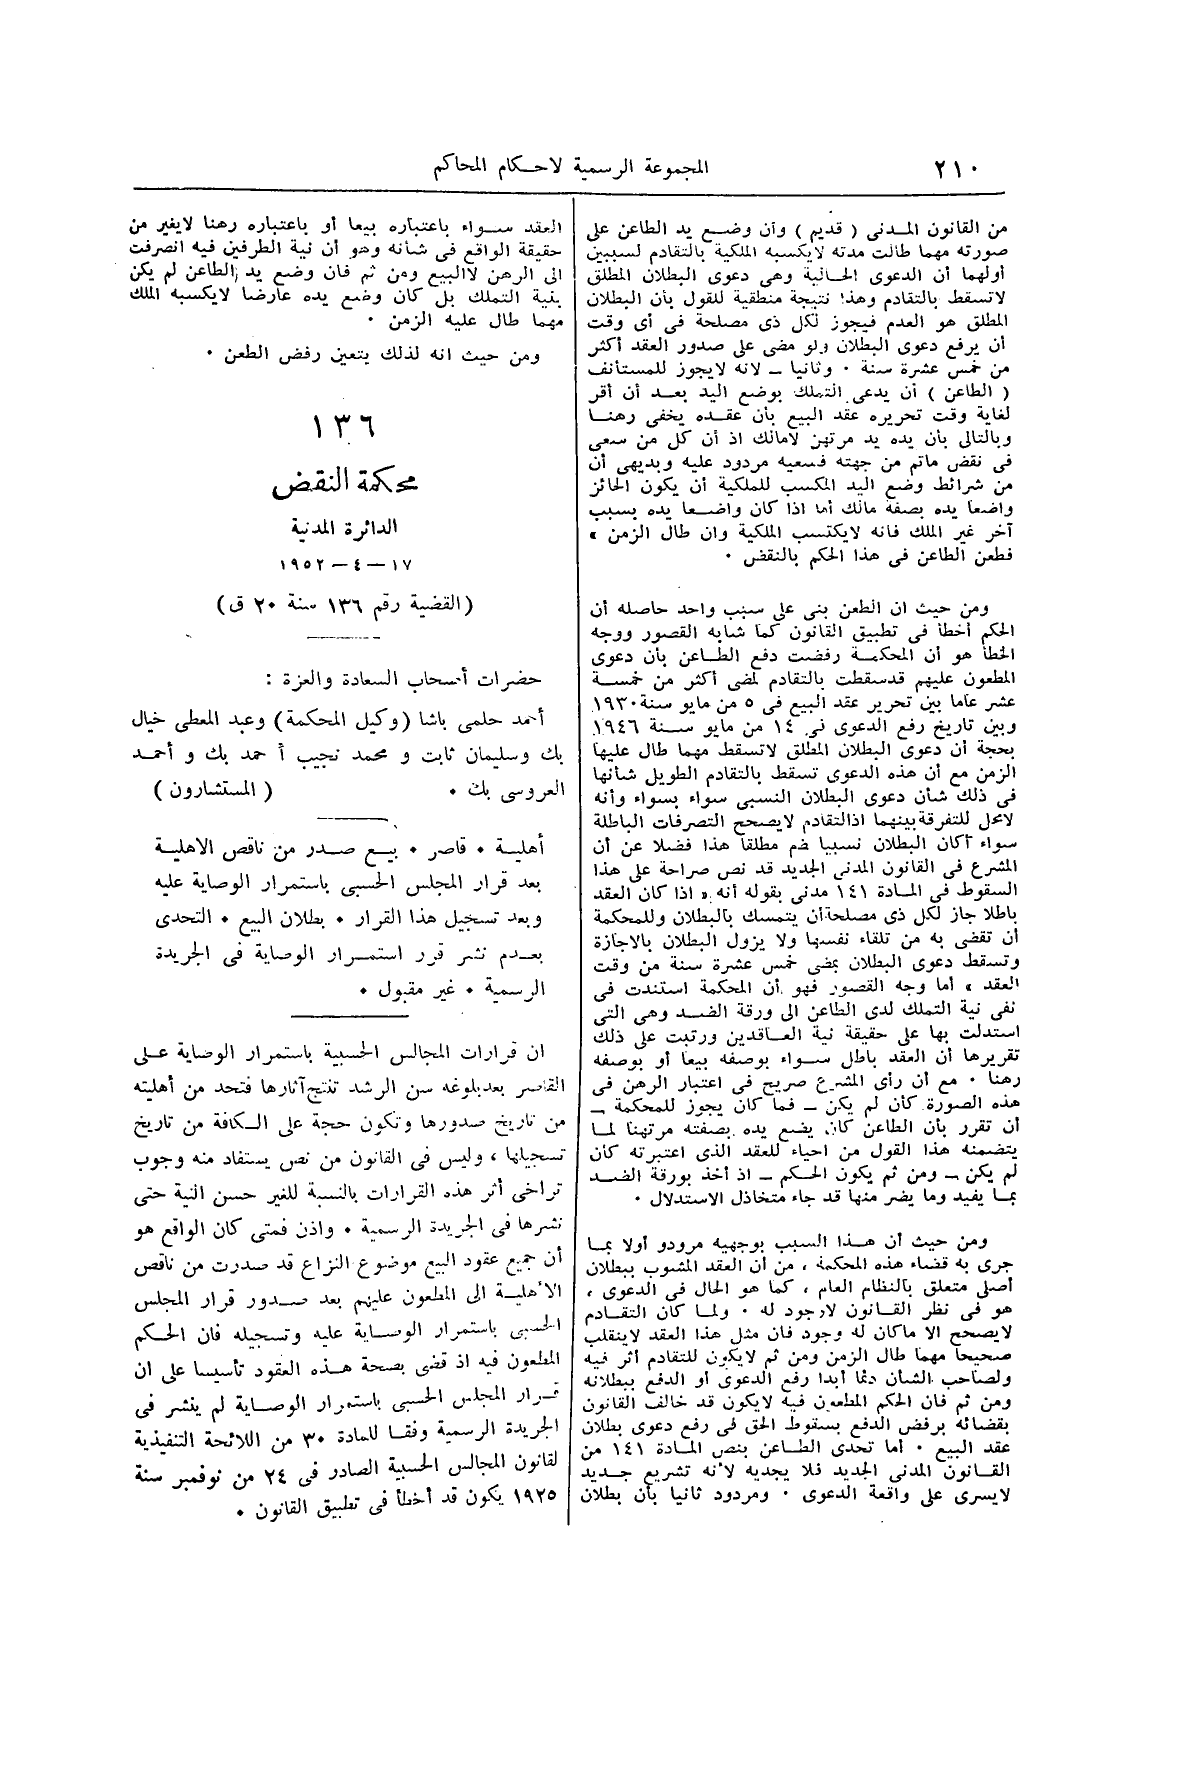 ٢١٠
المجموعة الرسمية لاحكام المحاكم
من القانون المدنى ( قديم ) وأن وضع يد الطاعن على
صورته مهما طالت مدته لايكسبه الملكية بالتقادم لسببين
أولهما أن الدعوى الحالية وهى دعوى البطلان المطلق
لاتسقط بالتقادم وهذا نتيجة منطقية للقول بأن البطلان
المطلق هو العدم فيجوز لكل ذى مصلحة فى أى وقت
أن يرفع دعوى البطلان ولو مضى على صدور العقد أكثر
من خمس عشرة سنة ٠ وثانيا ــ لانه لايجوز للمستأنف
( الطاعن ) أن يدعى التملك بوضع اليد بعد أن أقر
لغاية وقت تحريره عقد البيع بأن عقده يخفى رهنا
وبالتالى بأن يده يد مرتهن لامالك اذ أن كل من سعى
فى نقض ماتم من جهته فسعيه مردود عليه وبديهى أن
من شرائط وضع اليد المكسب للملكية أن يكون الحائز
واضعا يده بصفة مالك أما اذا كان واضعا يده بسبب
آخر غير الملك فانه لايكتسب الملكية وان طال الزمن »
فطعن الطاعن فى هذا الحكم بالنقض ٠
ومن حيث ان الطعن بنى على سبب واحد حاصله أن
الحكم أخطأ فى تطبيق القانون كما شابه القصور ووجه
الخطأ هو أن المحكمة رفضت دفع الطاعن بأن دعوى
المطعون عليهم قدسقطت بالتقادم لمضى أكثر من خمسة
عشر عاما بين تحرير عقد البيع فى ٥ من مايو سنة ١٩٣٠
وبين تاريخ رفع الدعوى فى ١٤ من مايو سنة ١٩٤٦
بحجة أن دعوى البطلان المطلق لاتسقط مهما طال عليها
الزمن مع أن هذه الدعوى تسقط بالتقادم الطويل شأنها
فى ذلك شأن دعوى البطلان النسبى سواء بسواء وأنه
لامحل للتفرقة بينهما اذالتقادم لايصحح التصرفات الباطلة
سواء أكان البطلان نسبيا ضم مطلقا هذا فضلا عن أن
المشرع فى القانون المدنى الجديد قد نص صراحة على هذا
السقوط فى المادة ١٤١ مدنى بقوله أنه « اذا كان العقد
باطلا جاز لكل ذى مصلحة أن يتمسك بالبطلان وللمحكمة
أن تقضى به من تلقاء نفسها ولا يزول البطلان بالاجازة
وتسقط دعوى البطلان بمضى خمس عشرة سنة من وقت
العقد » أما وجه القصور فهو أن المحكمة استندت فى
نفى نية التملك لدى الطاعن الى ورقة الضد وهى التى
استدلت بها على حقيقة نية العاقدين ورتبت على ذلك
تقريرها أن العقد باطل سواء بوصفه بيعا أو بوصفه
رهنا ٠ مع أن رأى المشرع صريح فى اعتبار الرهن فى
هذه الصورة كأن لم يكن ــ فما كان يجوز للمحكمة ــ
أن تقرر بأن الطاعن كان يضع يده بصفته مرتهنا لما
يتضمنه هذا القول من احياء للعقد الذى اعتبرته كان
لم يكن ــ ومن ثم يكون الحكم ــ اذ أخذ بورقة الضد
بما يفيد وما يضر منها قد جاء متخاذل الاستدلال ٠
ومن حيث أن هذا السبب بوجهيه مرودو أولا بما
جرى به قضاء هذه المحكمة ، من أن العقد المشوب ببطلان
أصلى متعلق بالنظام العام ، كما هو الحال فى الدعوى ،
هو فى نظر القانون لاوجود له ٠ ولما كان التقادم
لايصحح الا ماكان له وجود فان مثل هذا العقد لاينقلب
صحيحا مهما طال الزمن ومن ثم لايكون للتقادم أثر فيه
ولصاحب الشأن دئما أبدا رفع الدعوى أو الدفع ببطلانه
ومن ثم فان الحكم المطعون فيه لايكون قد خالف القانون
بقضائه برفض الدفع بسقوط الحق فى رفع دعوى بطلان
عقد البيع ٠ أما تحدى الطاعن بنص المادة ١٤١ من
القانون المدنى الجديد فلا يجديه لأنه تشريع جديد
لايسرى على واقعة الدعوى ٠ ومردود ثانيا بأن بطلان
العقد سواء باعتباره بيعا أو باعتباره رهنا لايغير من
حقيقة الواقع فى شأنه وهو أن نية الطرفين فيه انصرفت
الى الرهن لاالبيع ومن ثم فان وضع يد الطاعن لم يكن
بنية التملك بل كان وضع يده عارضا لايكسبه الملك
مهما طال عليه الزمن ٠
ومن حيث انه لذلك يتعين رفض الطعن ٠
١٣٦
محكمة النقض
الدائرة المدنية
١٧ــ ٤ــ ١٩٥٢
(القضية رقم ١٣٦ سنة ٢٠ ق)
حضرات أصحاب السعادة والعزة :
أحمد حلمى باشا (وكيل المحكمة) وعبد المعطى خيال
بك وسليمان ثابت و محمد نجيب أحمد بك و أحمد
العروسى بك ٠ ( المستشارون )
أهلية ٠ قاصر ٠ بيع صدر من ناقص الاهلية
بعد قرار المجلس الحسبى باستمرار الوصاية عليه
وبعد تسجيل هذا القرار ٠ بطلان البيع ٠ التحدى
بعدم نشر قرر استمرار الوصاية فى الجريدة
الرسمية ٠ غير مقبول ٠
ان قرارات المجالس الحسبية باستمرار الوصاية على
القاصر بعدبلوغه سن الرشد تنتج آثارها فتحد من أهليته
من تاريخ صدورها وتكون حجة على الكافة من تاريخ
تسجيلها ، وليس فى القانون من نص يستفاد منه وجوب
تراخى أثر هذه القرارات بالنسبة للغير حسن النية حتى
نشرها فى الجريدة الرسمية ٠ واذن فمتى كان الواقع هو
أن جميع عقود البيع موضوع النزاع قد صدرت من ناقص
الأهلية الى المطعون عليهم بعد صدور قرار المجلس
الحسبى باستمرار الوصاية عليه وتسجيله فان الحكم
المطعون فيه اذ قضى بصحة هذه العقود تأسيسا على ان
قرار المجلس الحسبى باستمرار الوصاية لم ينشر فى
الجريدة الرسمية وفقا للمادة ٣٠ من اللائحة التنفيذية
لقانون المجالس الحسبية الصادر فى ٢٤ من نوفمبر سنة
١٩٢٥ يكون قد أخطأ فى تطبيق القانون ٠